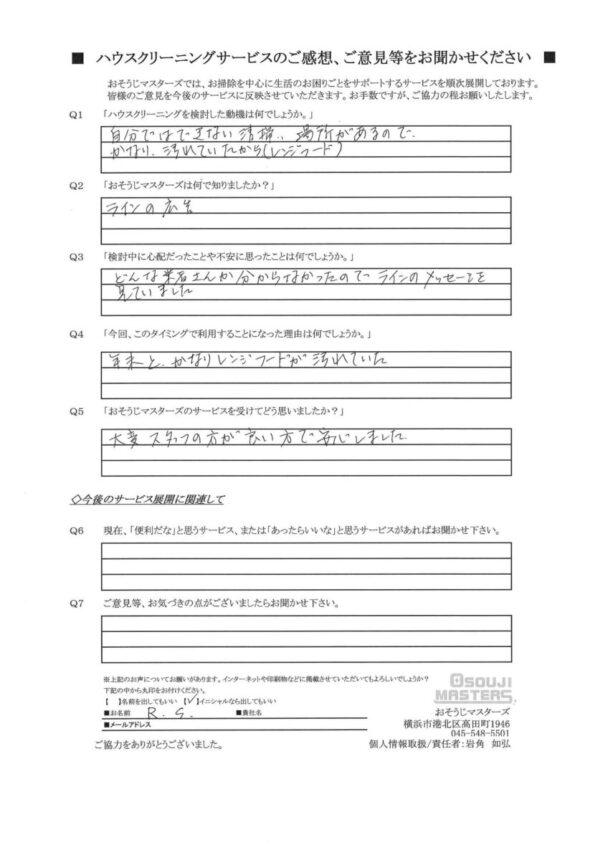 ■ ハウスクリーニングサービスのご感想、ご意見等をお聞かせください ■
おそうじマスターズでは、お掃除を中心に生活のお困りごとをサポートするサービスを順次展開しております。
皆様のご意見を今後のサービスに反映させていただきます。お手数ですが、ご協力の程お願いしたします。
Q1 「ハウスクリーニングを検討した動機は何でしょうか。」
自分ではできない清掃、場所があるので、
かなり、汚れていたから(レンジフード)
Q2 「おそうじマスターズは何で知りましたか？」
ラインの広告
Q3 「検討中に心配だったことや不安に思ったことは何でしょうか。」
どんな業者さんか分からなかったので ラインのメッセージを
見ていました
Q4 「今回、このタイミングで利用することになった理由は何でしょうか。」
年末と、かなりレンジフードが汚れていた
Q5 「おそうじマスターズのサービスを受けてどう思いましたか？」
大変 スタッフの方が良い方で安心しました
◇今後のサービス展開に関連して
Q6 現在、「便利だな」と思うサービス、または「あったらいいな」と思うサービスがあればお聞かせ下さい。
Q7 ご意見等、お気づきの点がございましたらお聞かせ下さい。
※上記のお声についてお願いがあります。インターネットや印刷物などに掲載させていただいてもよろしいでしょうか？
下記の中から丸印をお付けください。
【 】名前を出してもいい 【✓】イニシャルなら出してもいい
■お名前 R. S. ■貴社名
■メールアドレス
ご協力をありがとうございました。
OSOUJI
MASTERS
おそうじマスターズ
横浜市港北区高田町1946
045-548-5501
個人情報取扱/責任者：岩角 如弘